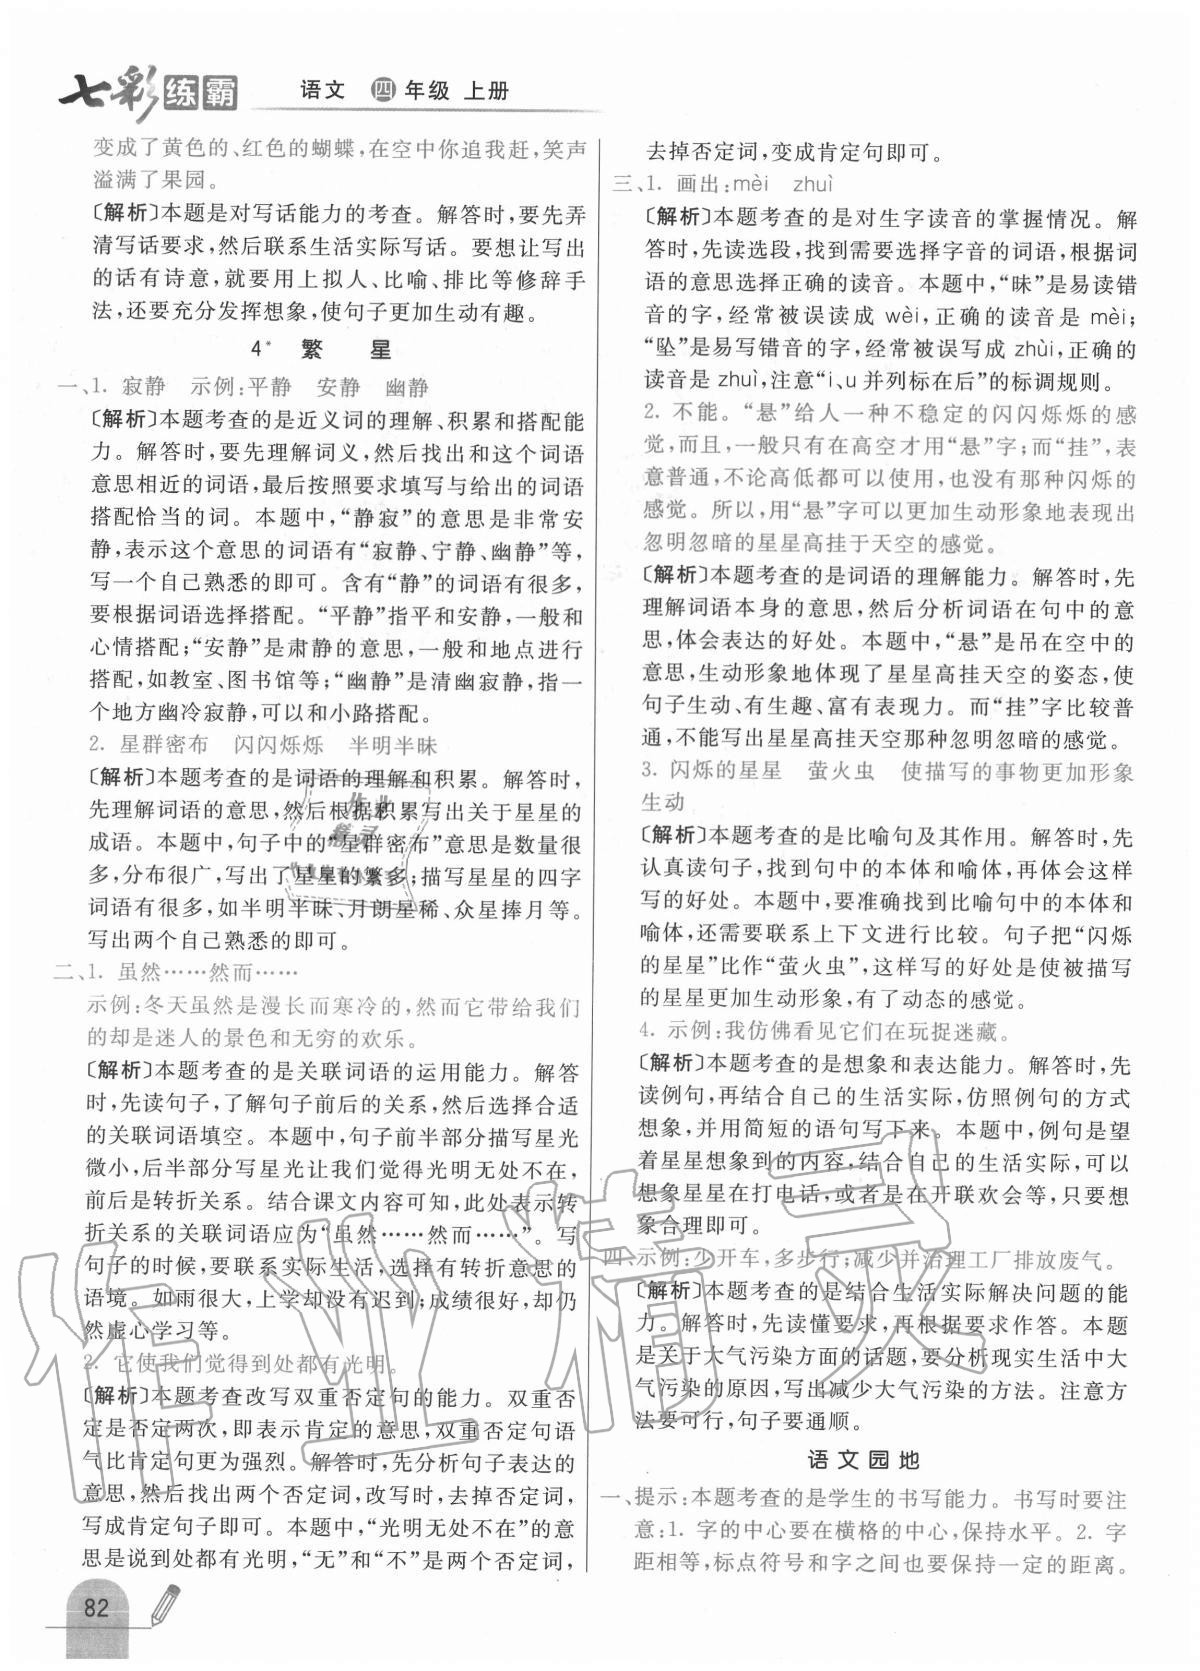 七彩练霸 语文 四 年级 上册
变成了黄色的、红色的蝴蝶，在空中你追我赶，笑声
溢满了果园。
〔解析〕本题是对写话能力的考查。解答时，要先弄
清写话要求，然后联系生活实际写话。要想让写出
的话有诗意，就要用上拟人、比喻、排比等修辞手
法，还要充分发挥想象，使句子更加生动有趣。
4* 繁 星
一、1. 寂静 示例：平静 安静 幽静
〔解析〕本题考查的是近义词的理解、积累和搭配能
力。解答时，要先理解词义，然后找出和这个词语
意思相近的词语，最后按照要求填写与给出的词语
搭配恰当的词。本题中，“静寂”的意思是非常安
静，表示这个意思的词语有“寂静、宁静、幽静”等，
写一个自己熟悉的即可。含有“静”的词语有很多，
要根据词语选择搭配。“平静”指平和安静，一般和
心情搭配；“安静”是肃静的意思，一般和地点进行
搭配，如教室、图书馆等；“幽静”是清幽寂静，指一
个地方幽冷寂静，可以和小路搭配。
2. 星群密布 闪闪烁烁 半明半昧
〔解析〕本题考查的是词语的理解和积累。解答时，
先理解词语的意思，然后根据积累写出关于星星的
成语。本题中，句子中的“星群密布”意思是数量很
多，分布很广，写出了星星的繁多；描写星星的四字
词语有很多，如半明半昧、月朗星稀、众星捧月等。
写出两个自己熟悉的即可。
二、1. 虽然……然而……
示例：冬天虽然是漫长而寒冷的，然而它带给我们
的却是迷人的景色和无穷的欢乐。
〔解析〕本题考查的是关联词语的运用能力。解答
时，先读句子，了解句子前后的关系，然后选择合适
的关联词语填空。本题中，句子前半部分描写星光
微小，后半部分写星光让我们觉得光明无处不在，
前后是转折关系。结合课文内容可知，此处表示转
折关系的关联词语应为“虽然……然而……”。写
句子的时候，要联系实际生活，选择有转折意思的
语境。如雨很大，上学却没有迟到；成绩很好，却仍
然虚心学习等。
2. 它使我们觉得到处都有光明。
〔解析〕本题考查改写双重否定句的能力。双重否
定是否定两次，即表示肯定的意思，双重否定句语
气比肯定句更为强烈。解答时，先分析句子表达的
意思，然后找出两个否定词，改写时，去掉否定词，
写成肯定句子即可。本题中，“光明无处不在”的意
思是说到处都有光明，“无”和“不”是两个否定词，
去掉否定词，变成肯定句即可。
三、1. 画出：mèi zhuì
〔解析〕本题考查的是对生字读音的掌握情况。解
答时，先读选段，找到需要选择字音的词语，根据词
语的意思选择正确的读音。本题中，“昧”是易读错
音的字，经常被误读成 wèi，正确的读音是 mèi；
“坠”是易写错音的字，经常被误写成 zhùi，正确的
读音是 zhuì，注意“i、u并列标在后”的标调规则。
2. 不能。“悬”给人一种不稳定的闪闪烁烁的感
觉，而且，一般只有在高空才用“悬”字；而“挂”，表
意普通，不论高低都可以使用，也没有那种闪烁的
感觉。所以，用“悬”字可以更加生动形象地表现出
忽明忽暗的星星高挂于天空的感觉。
〔解析〕本题考查的是词语的理解能力。解答时，先
理解词语本身的意思，然后分析词语在句中的意
思，体会表达的好处。本题中，“悬”是吊在空中的
意思，生动形象地体现了星星高挂天空的姿态，使
句子生动、有生趣、富有表现力。而“挂”字比较普
通，不能写出星星高挂天空那种忽明忽暗的感觉。
3. 闪烁的星星 萤火虫 使描写的事物更加形象
生动
〔解析〕本题考查的是比喻句及其作用。解答时，先
认真读句子，找到句中的本体和喻体，再体会这样
写的好处。本题中，要准确找到比喻句中的本体和
喻体，还需要联系上下文进行比较。句子把“闪烁
的星星”比作“萤火虫”，这样写的好处是使被描写
的星星更加生动形象，有了动态的感觉。
4. 示例：我仿佛看见它们在玩捉迷藏。
〔解析〕本题考查的是想象和表达能力。解答时，先
读例句，再结合自己的生活实际，仿照例句的方式
想象，并用简短的语句写下来。本题中，例句是望
着星星想象到的内容，结合自己的生活实际，可以
想象星星在打电话，或者是在开联欢会等，只要想
象合理即可。
四、示例：少开车，多步行；减少并治理工厂排放废气。
〔解析〕本题考查的是结合生活实际解决问题的能
力。解答时，先读懂要求，再根据要求作答。本题
是关于大气污染方面的话题，要分析现实生活中大
气污染的原因，写出减少大气污染的方法。注意方
法要可行，句子要通顺。
语文园地
一、提示：本题考查的是学生的书写能力。书写时要注
意：1. 字的中心要在横格的中心，保持水平。2. 字
距相等，标点符号和字之间也要保持一定的距离。
82
作业精灵